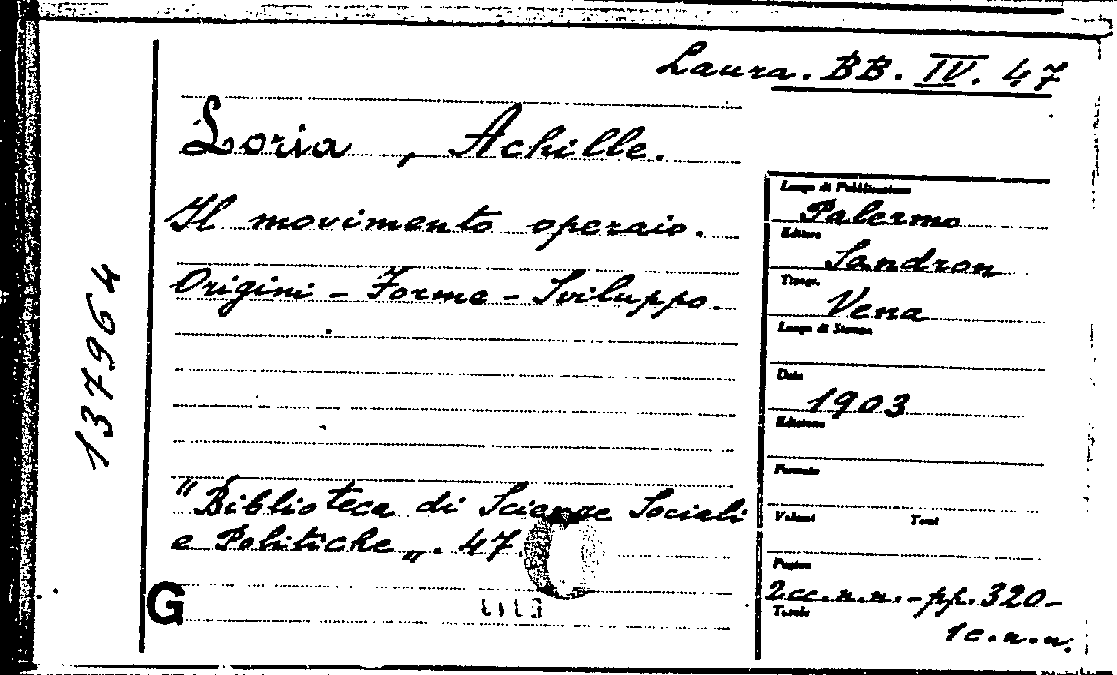 Laura. BB. IV. 47
Loria, Achille.
Il movimento operaio.
Origini - Forme - Sviluppo.
13796 4
"Biblioteca di Scienze Sociali
e Politiche„. 47.
G
Luogo di Pubblicazione
Palermo
Editore
Sandron
Tipogr.
Vena
Luogo di Stampa
Data
1903
Edizione
Formato
Volumi Tomi
Pagine
2cc.n.n. - pp. 320 -
Tavole
1c.n.n.